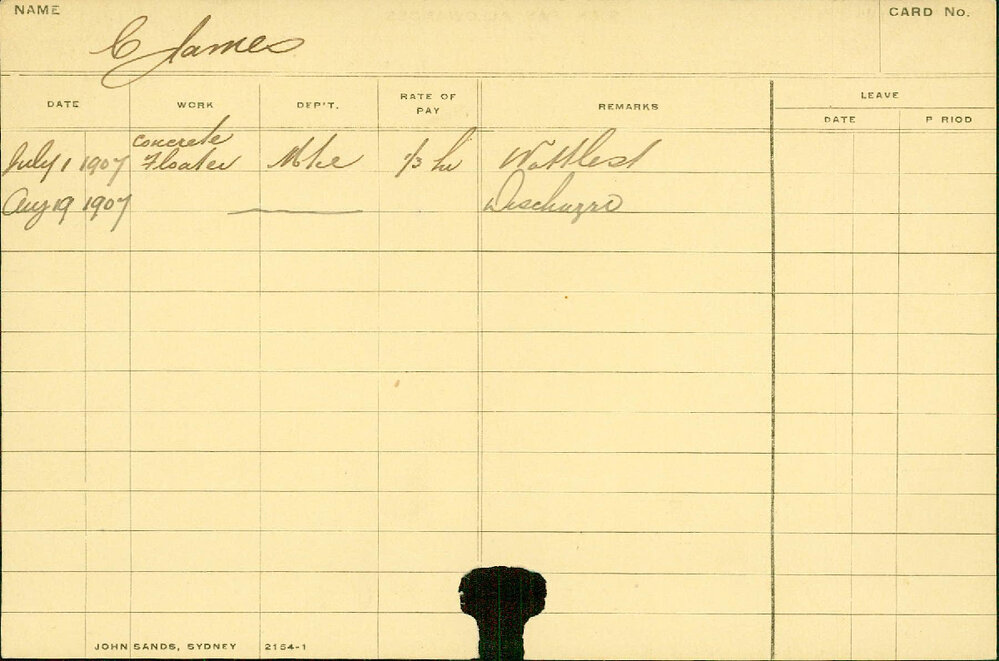 NAME
C James
CARD No.
DATE WORK DEP'T. RATE OF PAY REMARKS LEAVE
DATE P RIOD
July 1 1907 Concrete Floater 1/3 hr Wattle st
Aug 19 1907 Discharged
JOHN SANDS, SYDNEY 2154-1